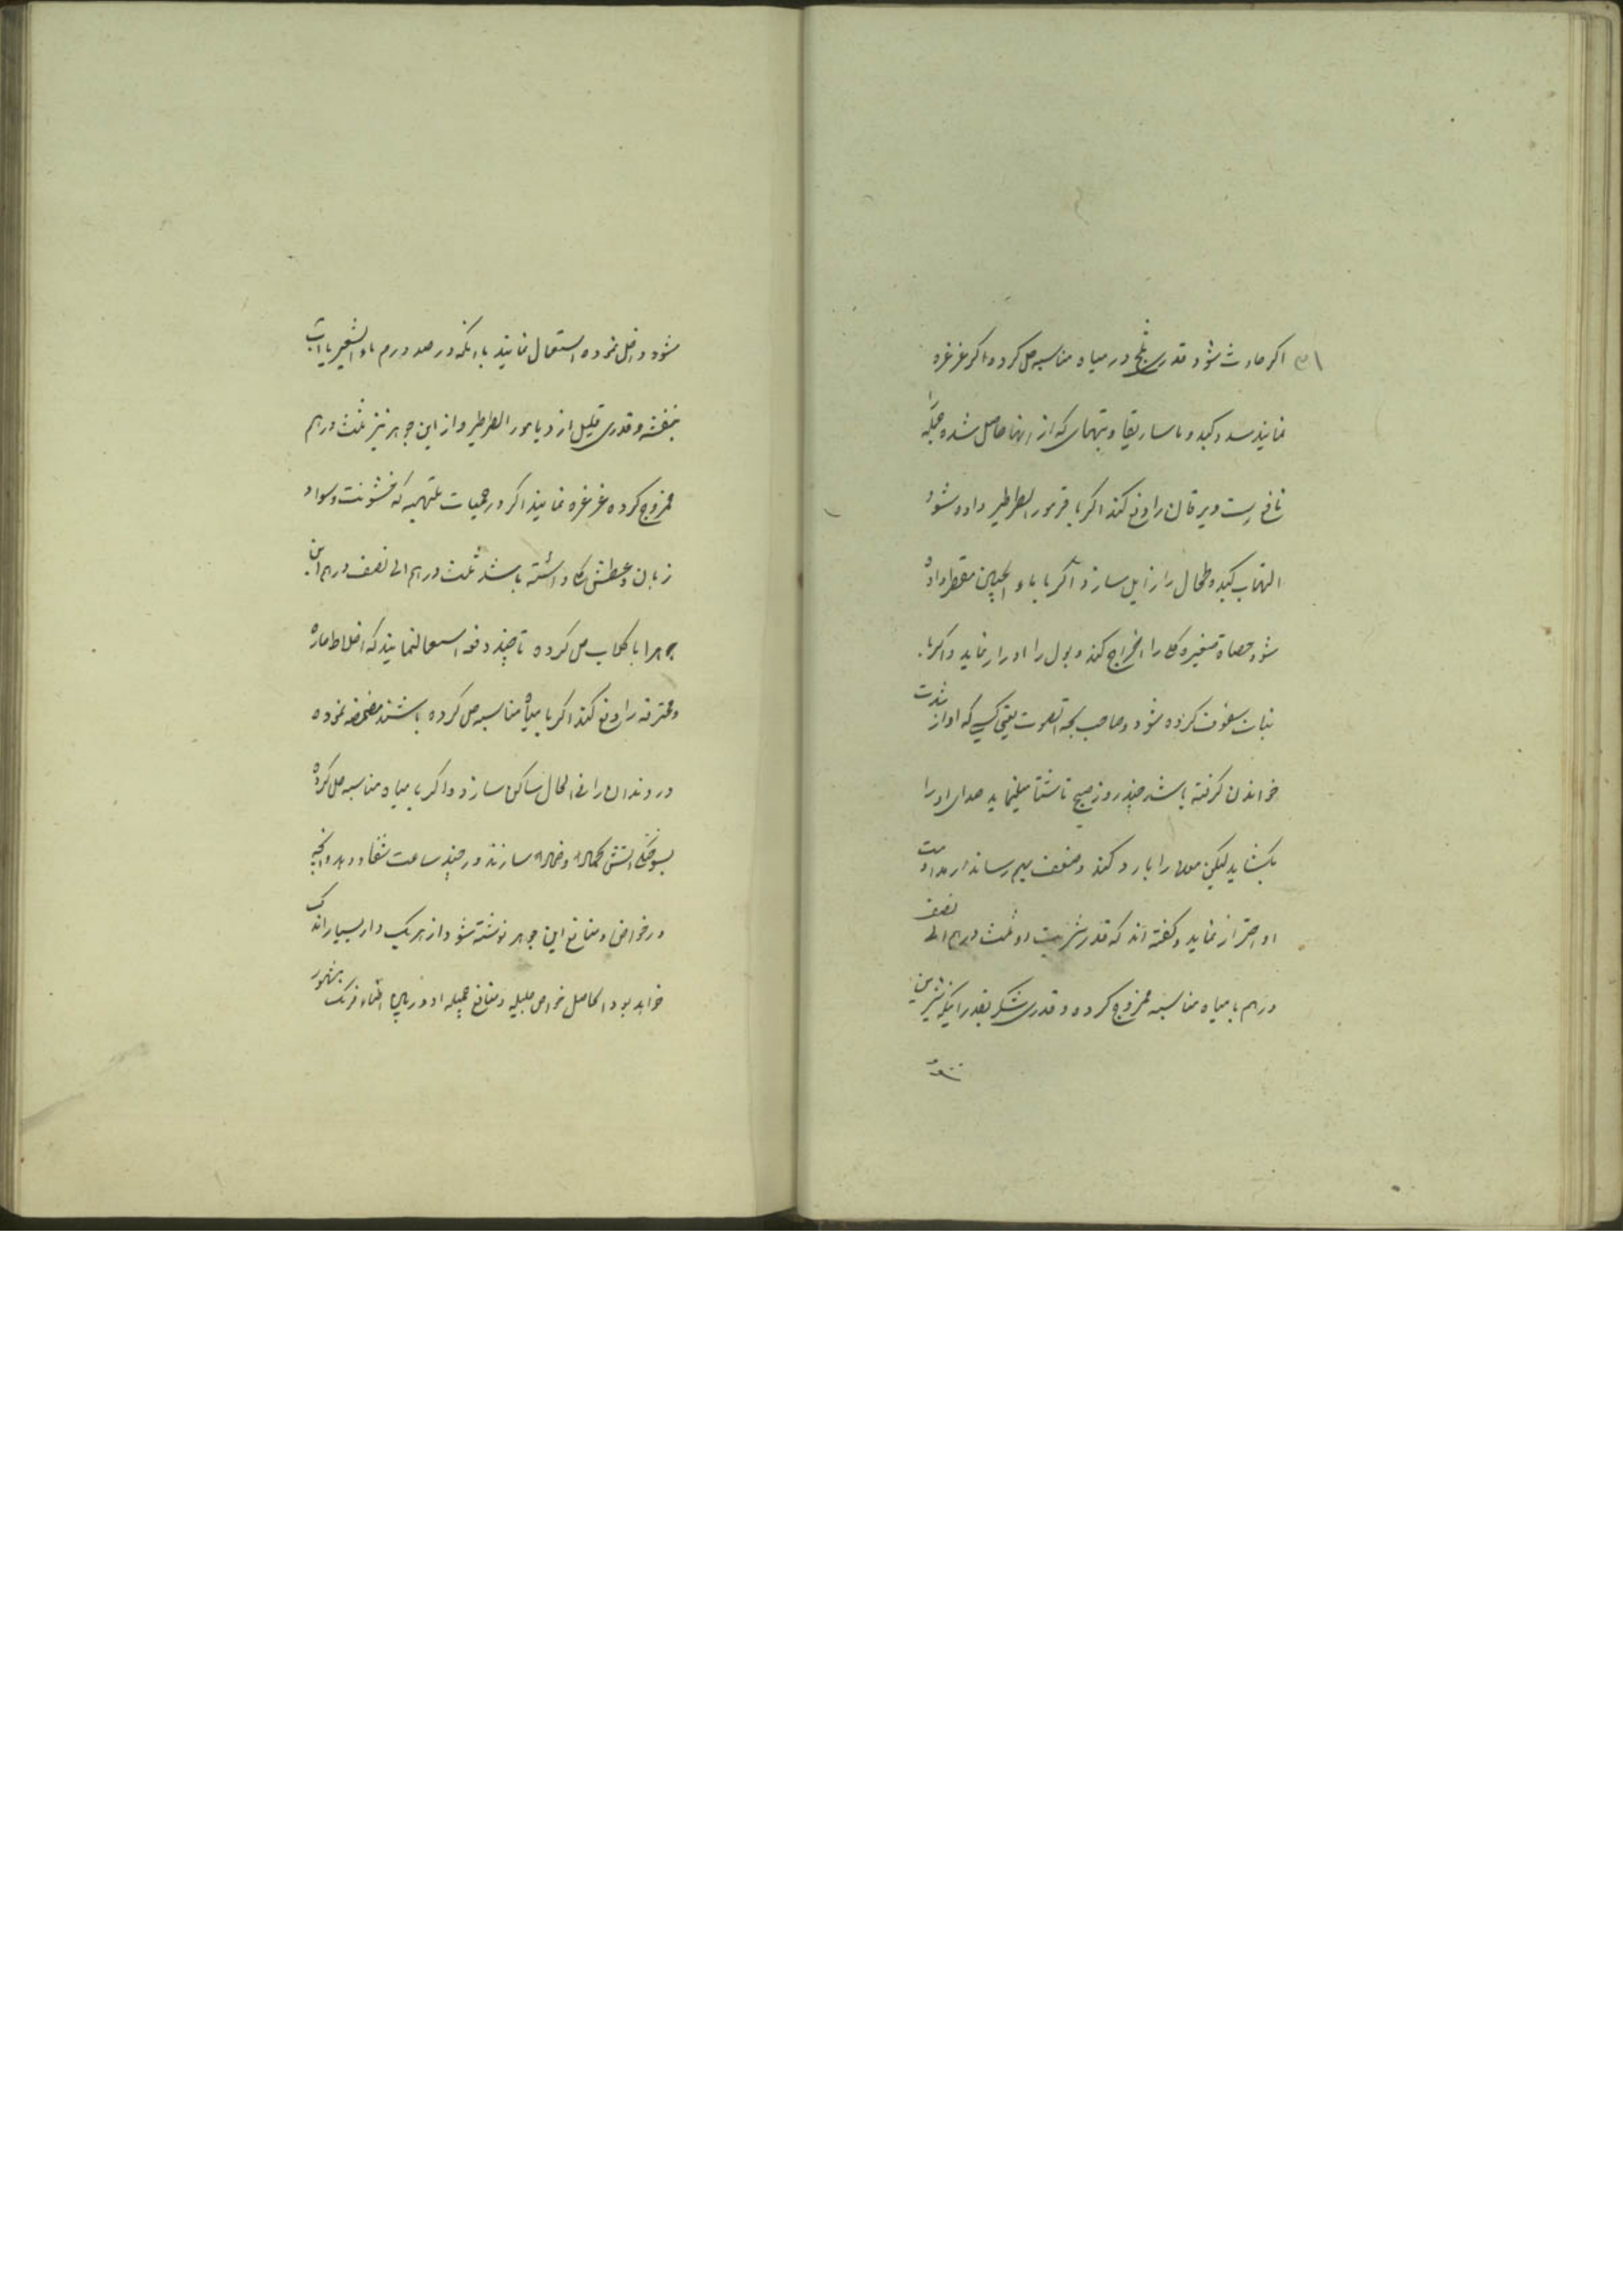 اکر حادث شود قدری ثلج در میاه مناسبه حل کرده اکر غرغره
نمایند سده کبد و ماساریقا و تبهای که از انها حاصل شده جمله را
نافع است و یرقان را دفع کند اکر با قرمور الطرطیر داده شود
التهاب کبد و طحال را زایل سازد اکر با ماء مقطر داده
شود حصاة صغیره کلا را اخراج کند و بول را ادرار نماید و اکر با
نبات سفوف کرده شود و صاحب بحة الصوت یعنی کسی که اواز از شدت
خواندن کرفته باشد چند روز صبح ناشتا میل نماید صدای او را
بکشاید لیکن معده را بارد کند و ضعف بهم رساند از مداومت
او احتراز نماید و کفته اند که قدر شربت او ثلث درهم الی نصف
درهم با میاه مناسبه ممزوج کرده و قدری شکر بقدر اینکه شیرین
شود
شود داخل نموده استعمال نمایند یا انکه در صد درم ماء الشعیر یا اب
بنفشه و قدری قلیل از دیامور الطرطیر و از این جوهر نیز ثلث درهم
ممزوج کرده غرغره نمایند اکر در حمیات ملتهبه که خشونت و سواد
زبان و عطش داشته باشد ثلث درهم الی نصف درهم این
جوهر را با کلاب حل کرده تا چند دفعه استعمال نمایند که اخلاط حاره
و محترقه را دفع کند اکر با میاه مناسبه حل کرده باشند مضمضه نموده
درد دندان را فی الحال ساکن سازد و اکر با میاه مناسبه حل کرده
بسوختکی اتش و ضماد سازند در چند ساعت شفا دهد و انچه
در خواص و منافع این جوهر نوشته شود از هر یک و از بسیار اندک
خواهد بود الحاصل خواص جلیله و منافع جمیله او در اطباء فرنک مشهور